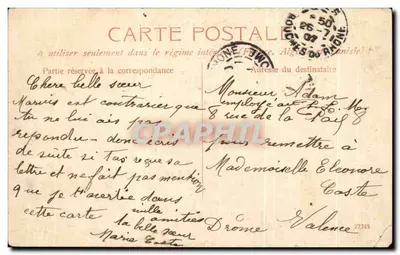 CARTE POSTALE
à utiliser seulement dans le régime intérieur
Partie réservée à la correspondance
Adresse du destinataire
Chere belle sœur
Marius est contrarier que
tu ne lui ais pas
repondu donc écris
de suite si tu as reçu sa
lettre et ne fait pas mention
que je t'avertie dans
cette carte mille amitiés
ta belle sœur
Marie Coste
Monsieur Adam
employé au P.L.M
8 rue de la Paix
pour remettre à
Mademoiselle Eleonore
Coste
Drôme Valence
BOUCHES DU RHONE
CPARHIL